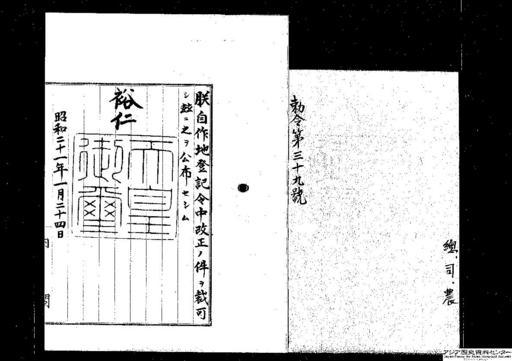 總、司、農
勅令第三十九號
朕自作地登記令中改正ノ件ヲ裁可
シ玆ニ之ヲ公布セシム
裕仁
天皇御璽
昭和二十一年一月二十四日
内閣
アジア歴史資料センター